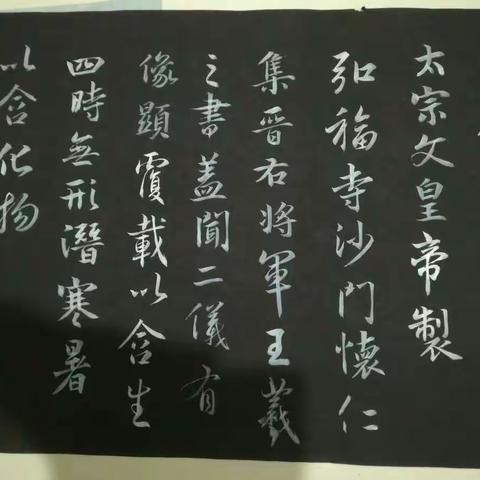 太宗文皇帝製
弘福寺沙門懷仁
集晋右將軍王羲
之書盖聞二儀有
像顯覆載以含生
四時無形潛寒暑
以含化物